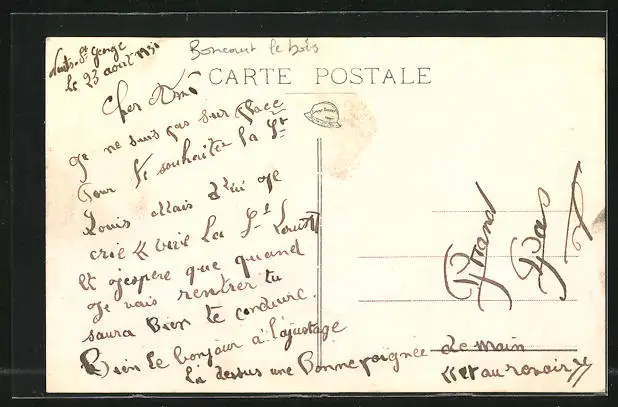 Nuits St George
le 23 août 1931
Boncourt le bois
CARTE POSTALE
Cher Ami
Je ne suis pas sur place
Pour te souhaiter la St
Louis Mais d'ici je
crie « vive la St Louis »
et j'espere que quand
je vais rentrer tu
saura Bien te conduire.
Bien le bonjour à l'ajustage
là dessus une Bonne poignée de main
« et au revoir »